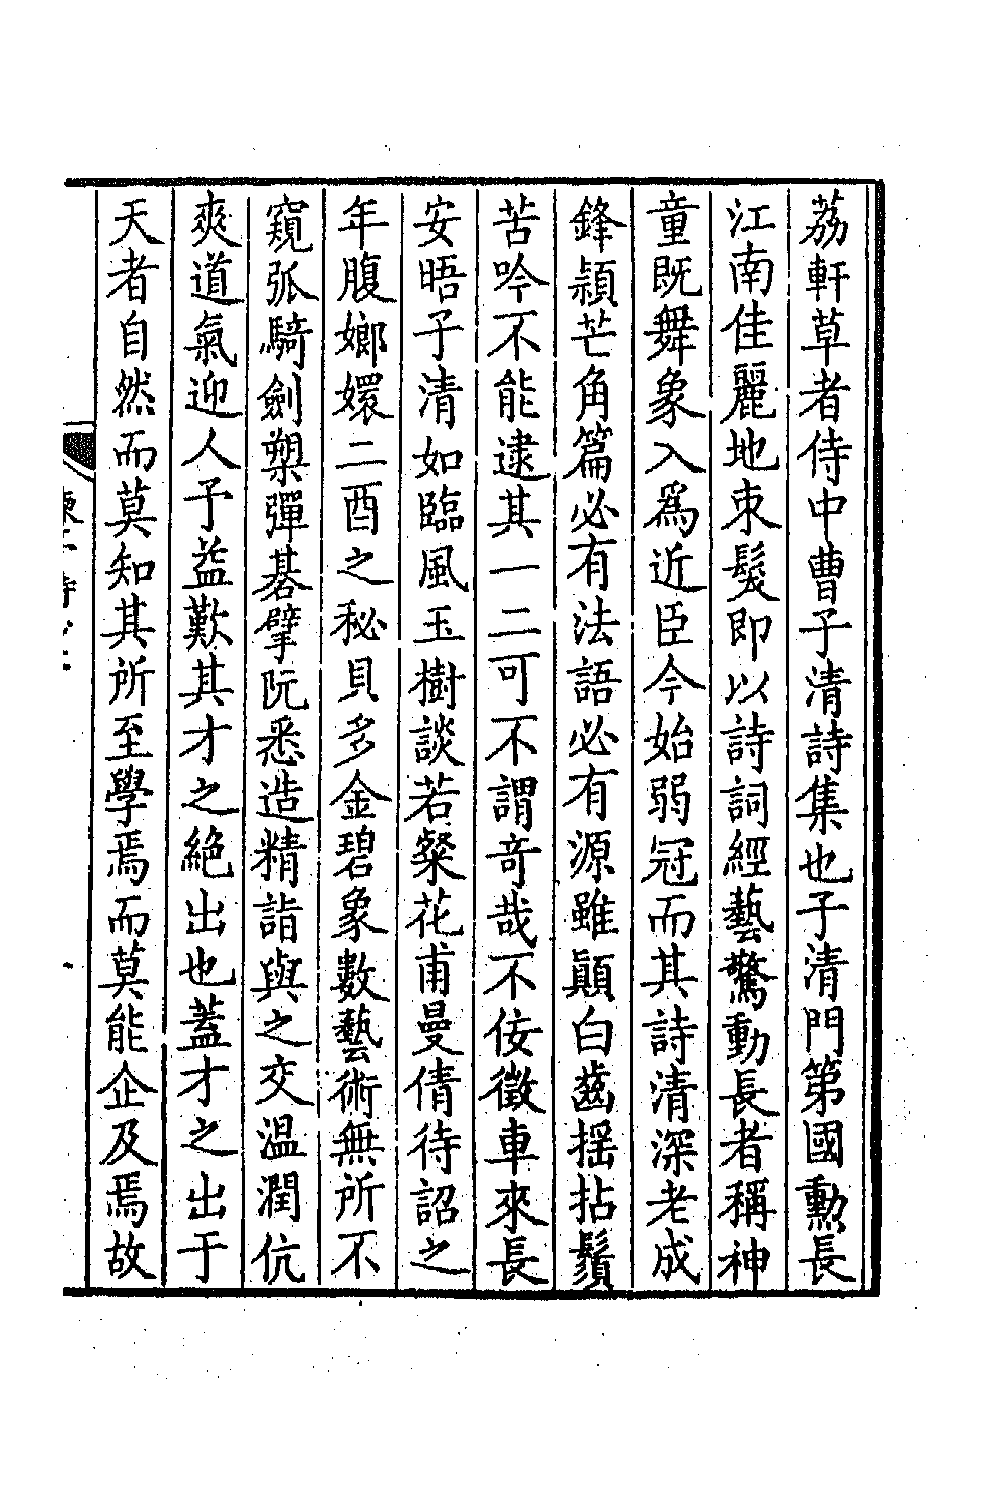 荔軒草者侍中曹子清詩集也子清門第國勲長
江南佳麗地束髮即以詩詞經藝驚動長者稱神
童既舞象入爲近臣今始弱冠而其詩清深老成
鋒頴芒角篇必有法語必有源雖顚白齒揺拈鬚
苦吟不能逮其一二可不謂奇哉不佞徵車來長
安晤子清如臨風玉樹談若粲花甫曼倩待詔之
年腹嫏嬛二酉之秘貝多金碧象數藝術無所不
窺弧騎劍槊彈碁擘阮悉造精詣與之交温潤伉
爽道氣迎人予益歎其才之絶出也蓋才之出于
天者自然而莫知其所至學焉而莫能企及焉故